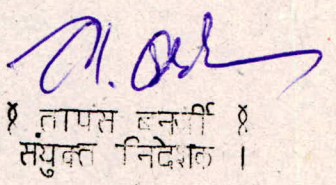 ( तापस बनर्जी )
संयुक्त निदेशक ।